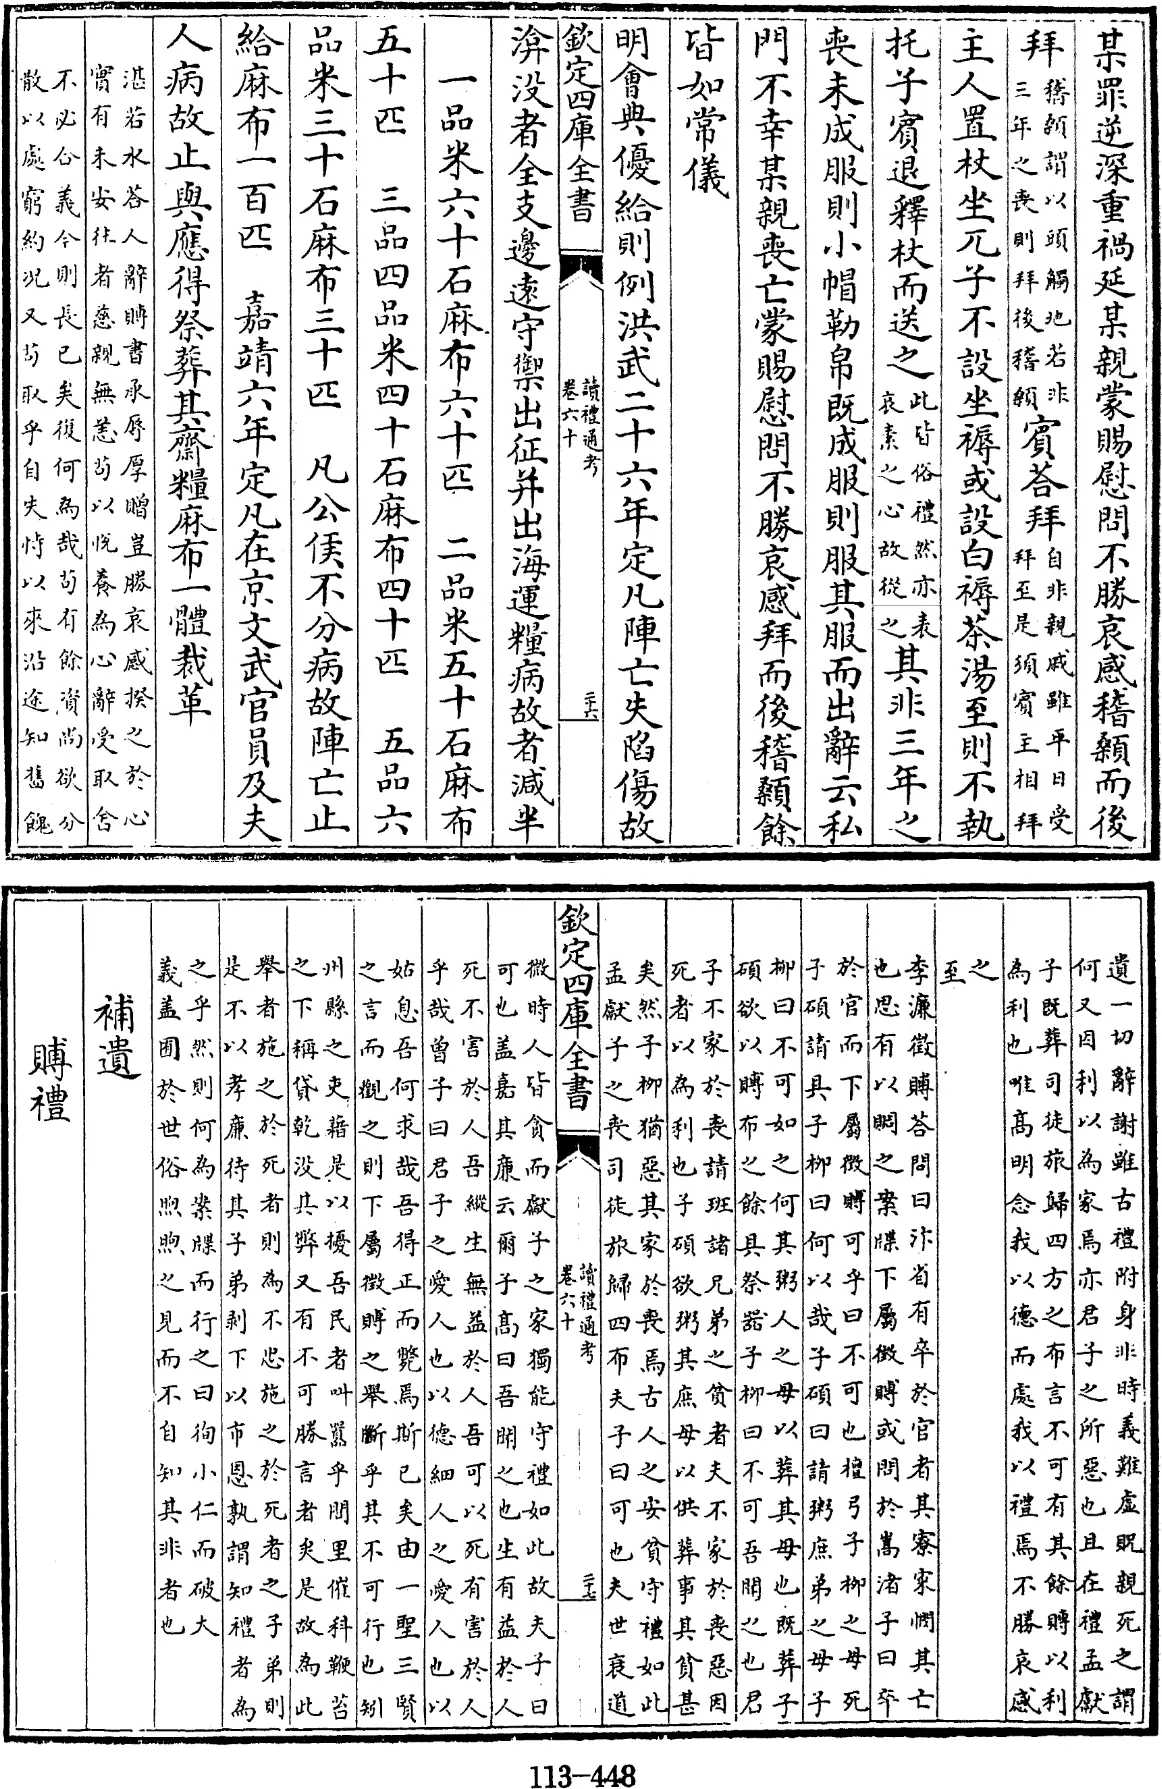 某罪逆深重禍延某親蒙賜慰問不勝哀感稽顙而後
拜稽顙謂以頭觸地若非三年之喪則拜後稽顙賓荅拜自非親戚雖平日受拜至是須賓主相拜
主人置杖坐兀子不設坐褥或設白褥茶湯至則不執
托子賓退釋杖而送之此皆俗禮然亦表哀素之心故從之其非三年之
喪未成服則小帽勒帛既成服則服其服而出辭云私
門不幸某親喪亡蒙賜慰問不勝哀感拜而後稽顙餘
皆如常儀
明會典優給則例洪武二十六年定凡陣亡失陷傷故
欽定四庫全書 讀禮通考 卷六十 二十六
渰没者全支邊遠守禦出征并出海運糧病故者減半
一品米六十石麻布六十匹 二品米五十石麻布
五十匹 三品四品米四十石麻布四十匹 五品六
品米三十石麻布三十匹 凡公侯不分病故陣亡止
給麻布一百匹 嘉靖六年定凡在京文武官員及夫
人病故止與應得祭葬其齋糧麻布一體裁革
湛若水荅人辭賻書承辱厚贈豈勝哀感揆之於心
實有未安往者慈親無恙苟以悦養為心辭受取舍
不必合義今則長已矣復何為哉苟有餘資尚欲分
散以處窮約况又苟取乎自失恃以來沿途知舊餽
遺一切辭謝雖古禮附身非時義難虛貺親死之謂
何又因利以為家焉亦君子之所惡也且在禮孟獻
子既葬司徒旅歸四方之布言不可有其餘賻以利
為利也唯高明念我以德而處我以禮焉不勝哀感
之
至
李濂徵賻荅問曰汴省有卒於官者其寮寀憫其亡
也思有以賙之案牒下屬徵賻或問於嵩渚子曰卒
於官而下屬徵賻可乎曰不可也檀弓子柳之母死
子碩請具子柳曰何以哉子碩曰請粥庶弟之母子
柳曰不可如之何其粥人之母以葬其母也既葬子
碩欲以賻布之餘具祭器子柳曰不可吾聞之也君
子不家於喪請班諸兄弟之貧者夫不家於喪惡因
死者以為利也子碩欲粥其庶母以供葬事其貧甚
矣然子柳猶惡其家於喪焉古人之安貧守禮如此
孟獻子之喪司徒旅歸四布夫子曰可也夫世衰道
欽定四庫全書 讀禮通考 卷六十 二十七
微時人皆貪而獻子之家獨能守禮如此故夫子曰
可也盖嘉其廉云爾子高曰吾聞之也生有益於人
死不害於人吾縱生無益於人吾可以死有害於人
乎哉曾子曰君子之愛人也以德細人之愛人也以
姑息吾何求哉吾得正而斃焉斯已矣由一聖三賢
之言而觀之則下屬徵賻之舉斷乎其不可行也矧
州縣之吏藉是以擾吾民者叫嚚乎閭里催科鞭笞
之下稱貸乾没其弊又有不可勝言者矣是故為此
舉者施之於死者則為不忠施之於死者之子弟則
是不以孝廉待其子弟剥下以市恩孰謂知禮者為
之乎然則何為案牒而行之曰徇小仁而破大
義盖囿於世俗煦煦之見而不自知其非者也
補遺
賻禮
113-448